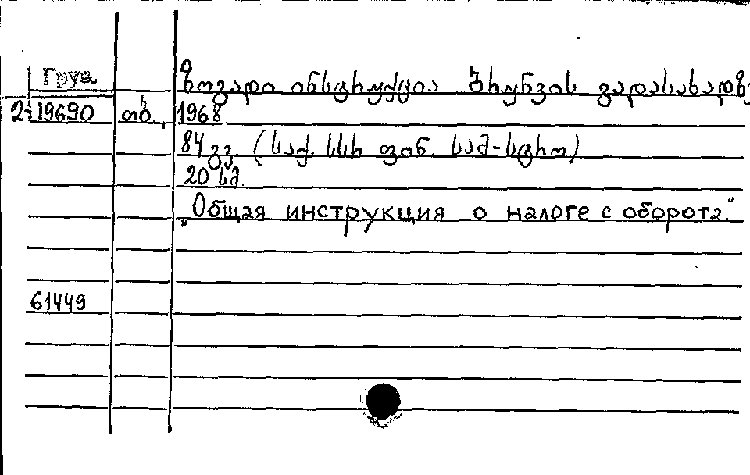 Груз.
ზოგადი ინსტრუქცია ბრუნვის გადასახადზე
2-19690 თბ., 1968
84 გვ. (საქ. სსრ ფინ. სამ-სტრო)
20 სმ.
„Общая инструкция о налоге с оборота."
61449